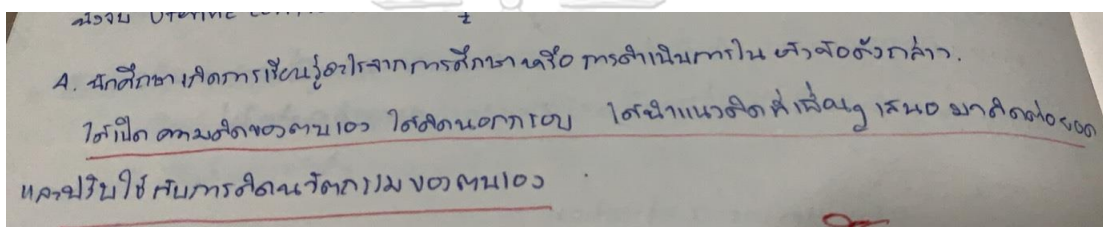 นึ่งจับ Uterine
4. นักศึกษาเกิดการเรียนรู้อะไรจากการศึกษา หรือ การดำเนินการใน หัวข้อดังกล่าว.
ได้เปิด ความคิดของตนเอง ได้คิดนอกกรอบ ได้นำแนวคิดที่เพื่อนๆ เสนอ มาคิดต่อยอด
และปรับใช้กับการคิดนวัตกรรมของตนเอง